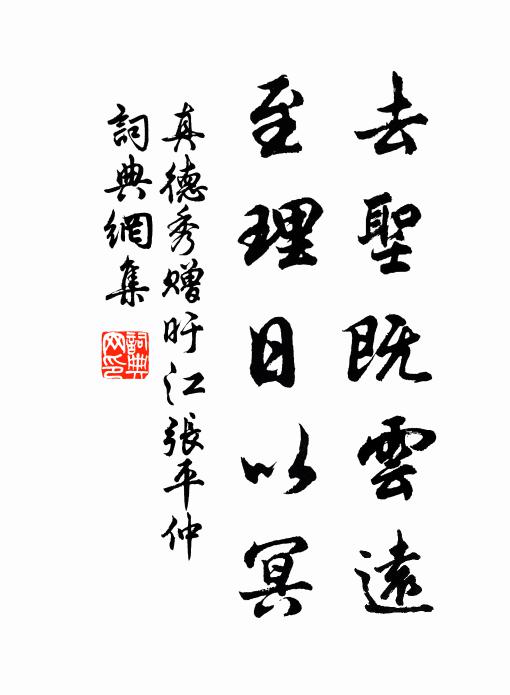 去聖既雲遠
至理日以冥
真德秀贈旴江張平仲
詞典網集
詞典
网印